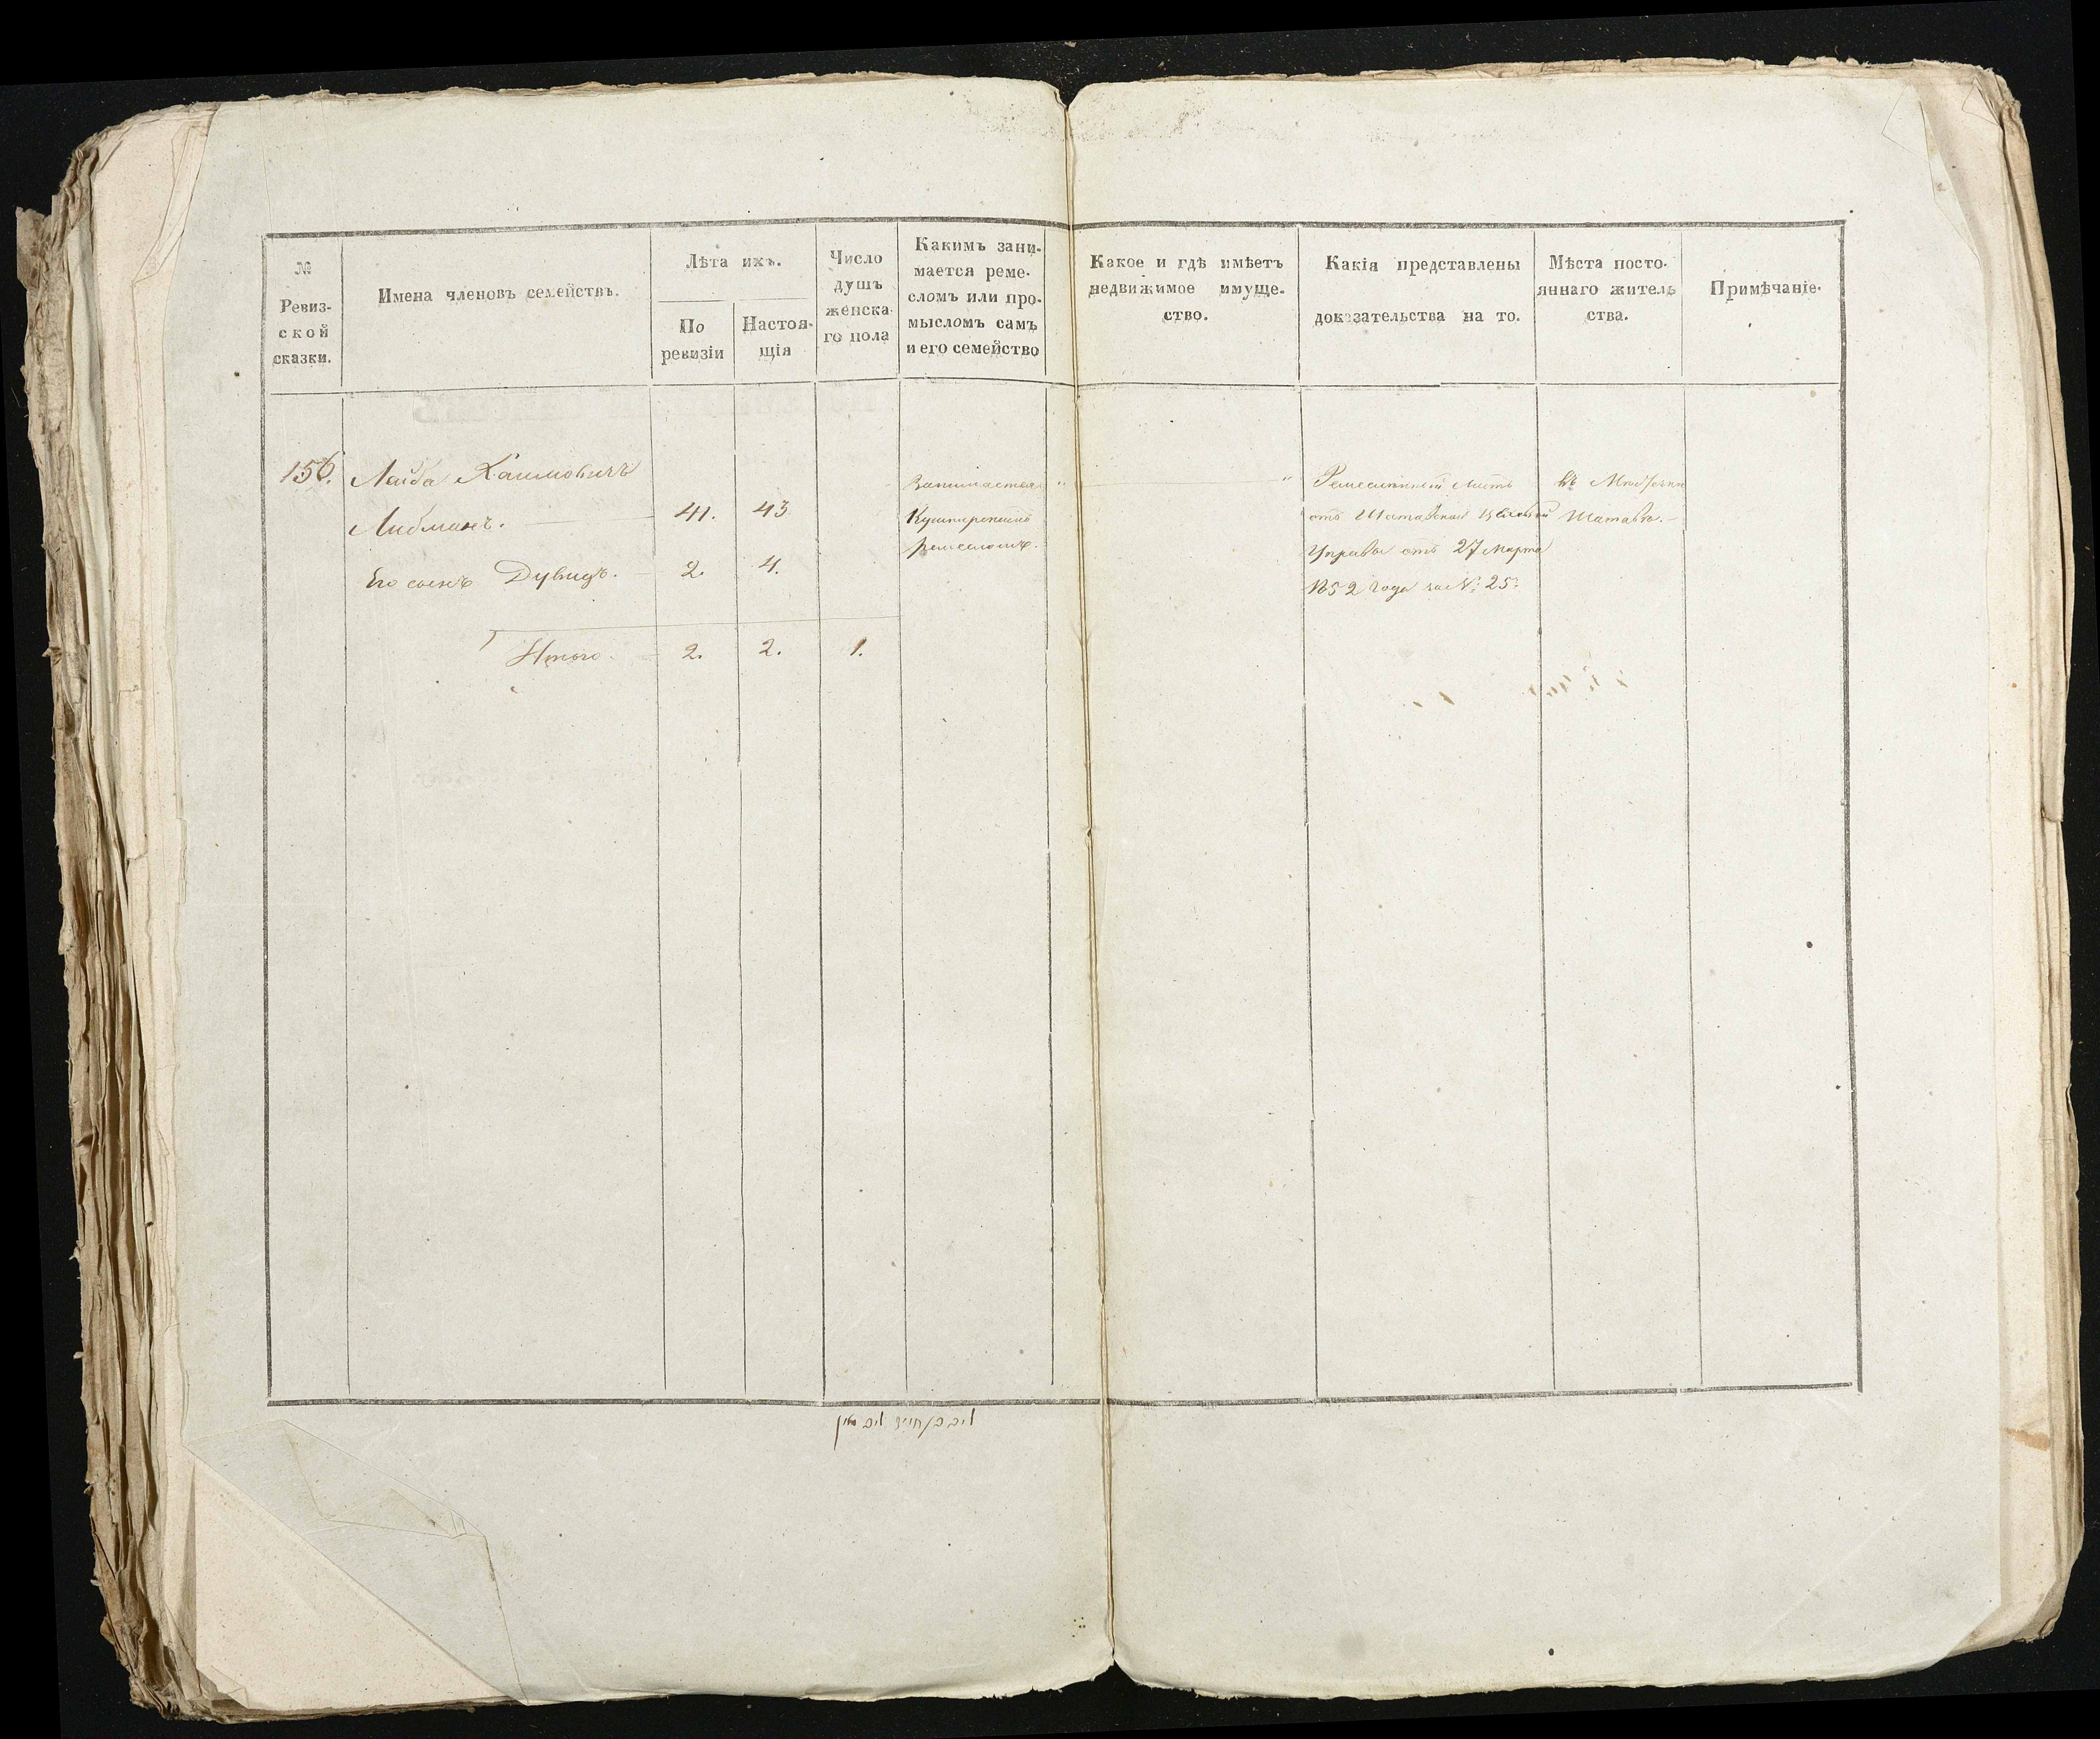 №
Ревиз-
ской
сказки.
Имена членовъ семействъ.
Лѣта ихъ.
По
ревизіи
Настоя-
щія
Число
душъ
женска-
го пола
Какимъ зани-
мается реме-
сломъ или про-
мысломъ самъ
и его семейство
Какое и гдѣ имѣетъ
недвижимое имуще-
ство.
Какія представлены
доказательства на то.
Мѣста посто-
яннаго житель
ства.
Примѣчаніе.
156. Лейба Хаимовичъ
Либманъ. 41. 43
Его сынъ Дувидъ. 2. 4.
Итого 2. 2. 1.
Занимается
ремесломъ.
Ремесленный листъ
отъ Шатавской Цеховой
Управы отъ 27 Марта
1852 года за № 25.
въ
Шатавѣ.
ליב בן חיים ליבמאן